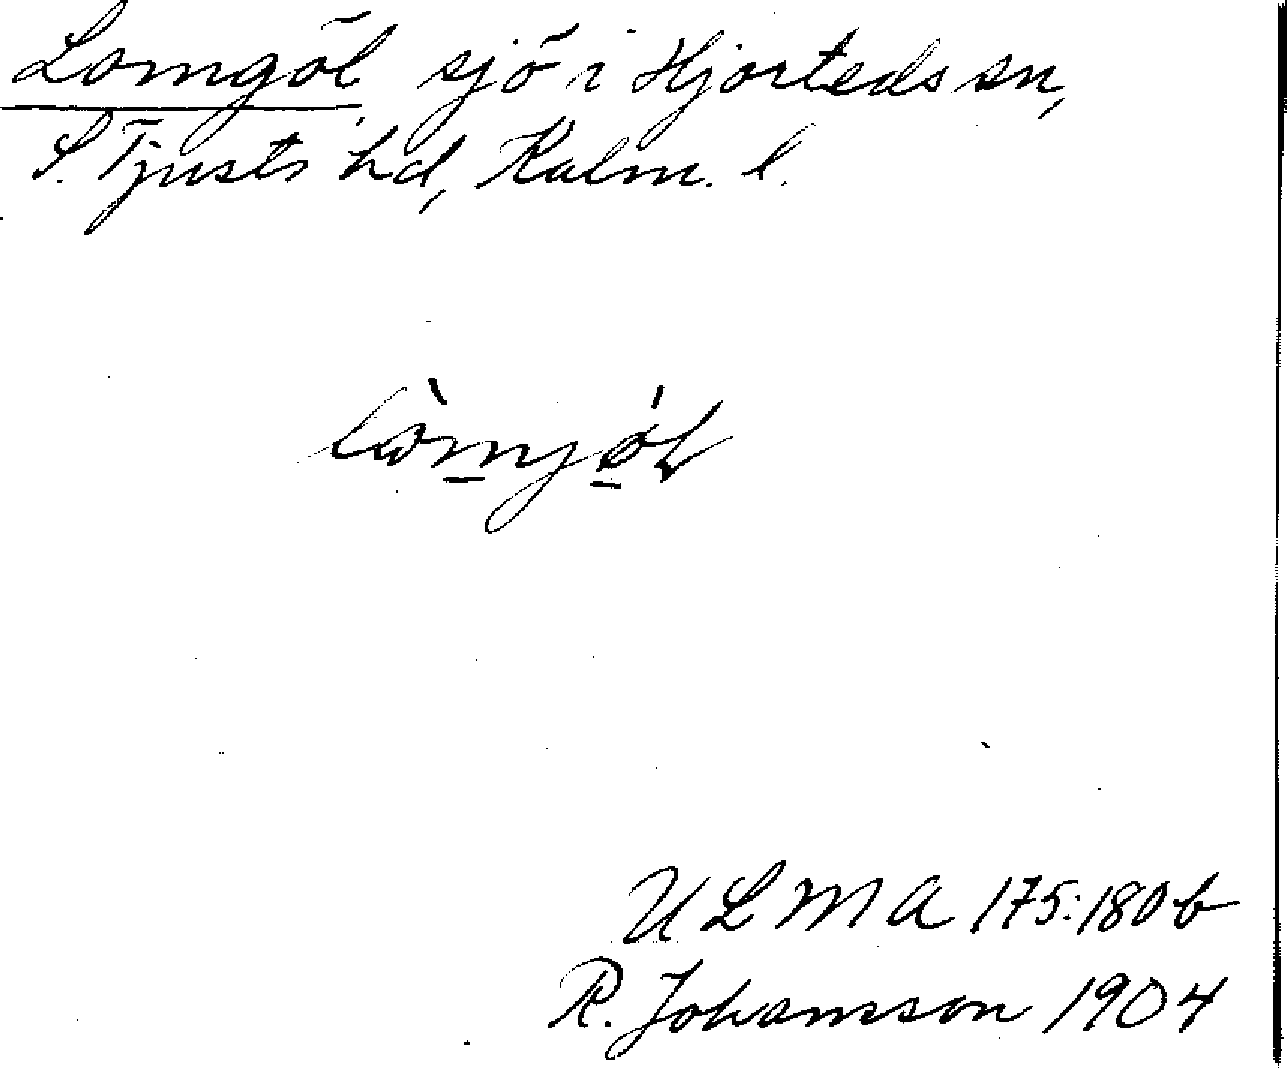 Lomgöl sjö i Hjorteds sn,
S. Tjusts hd, Kalm. l.
U L M A 175:180 b
R. Johansson 1904